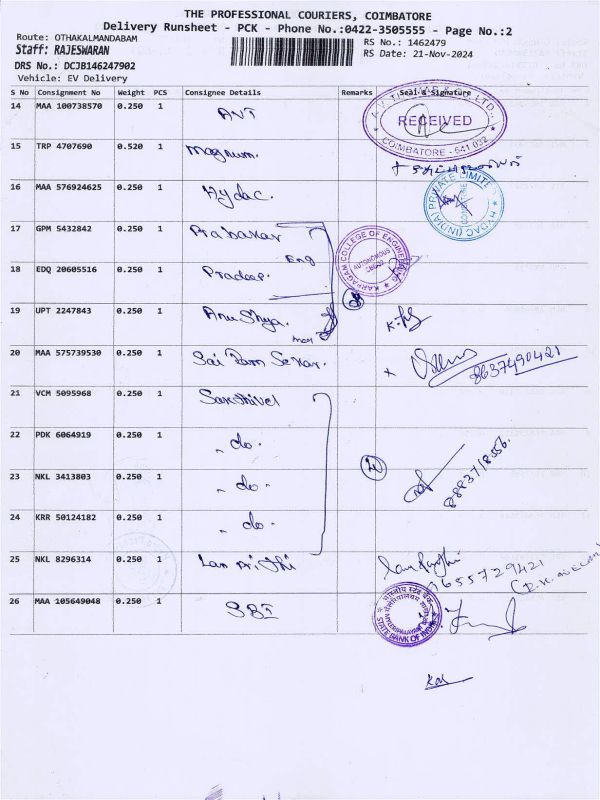 THE PROFESSIONAL COURIERS, COIMBATORE
Delivery Runsheet - PCK - Phone No.:0422-3505555 - Page No.:2
Route: OTHAKALMANDABAM
RS No.: 1462479
Staff: RAJESWARAN
RS Date: 21-Nov-2024
DRS No.: DCJB146247902
Vehicle: EV Delivery
S No Consignment No Weight PCS Consignee Details Remarks Seal & Signature
14 MAA 100738570 0.250 1 AVT
RECEIVED
COIMBATORE - 641 032
15 TRP 4707690 0.520 1 Magnum.
16 MAA 576924625 0.250 1 Hydac.
HYDAC (INDIA) PRIVATE LIMITED
17 GPM 5432842 0.250 1 Prabakar
Eng
KARPAGAM COLLEGE OF ENGINEERING
AUTONOMOUS
18 EDQ 20605516 0.250 1 Pradeep.
19 UPT 2247843 0.250 1 Anushya.
20 MAA 575739530 0.250 1 Sai Ram Sekar.
8637490421
21 VCM 5095968 0.250 1 Sakthivel
22 PDK 6064919 0.250 1 " do.
23 NKL 3413803 0.250 1 " do.
24 KRR 50124182 0.250 1 " do.
25 NKL 8296314 0.250 1
9655729421
26 MAA 105649048 0.250 1 SBI
भारतीय स्टेट बैंक
STATE BANK OF INDIA